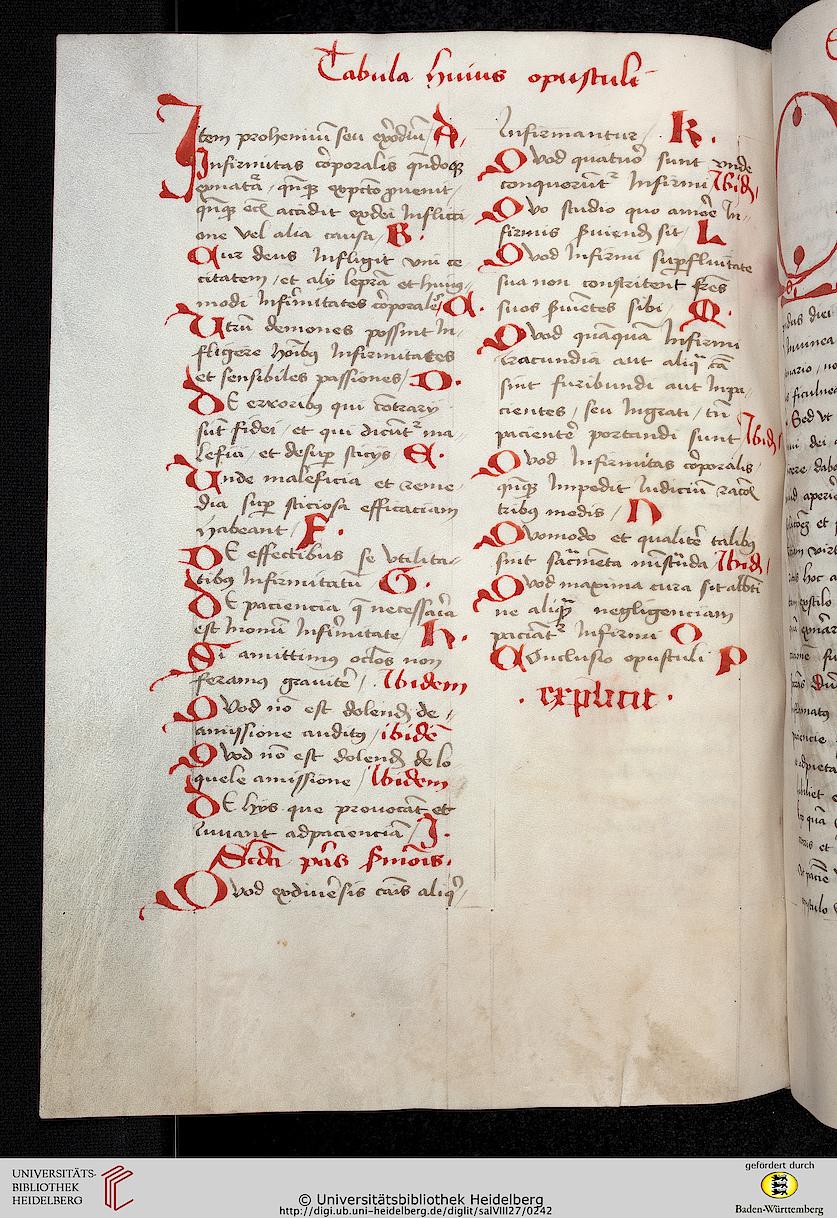 Tabula huius opusculi
Item prohemiū seu exordiū A.
Infirmitas corporalis qn̄doqꝫ
qn̄qꝫ eciā accidit ex dei inflicti
one vel alia causa / B.
Cur deus infligit vni ce
citatem / et alij leprā et huius
modi infirmitates corporales C.
Vtrū demones possint in
fligere hoībꝰ infirmitates
et sensibiles passiones / D.
DE erroribꝰ qui contrarij
sūt fidei / et qui dicūtr ma
leficia / et desuper sticijs E.
Vnde maleficia et reme
dia super sticiosa efficaciam
habeant / F.
DE effectibus se vtilita
tibꝰ infirmitatū G.
DE paciencia q̄ necessaria
est in omni infirmitate / h.
Si amittimus oculos non
feramus grauiter / Ibidem
Quod nō est dolend de
amissione auditus / ibidē
Quod nō est dolend de lo
quele amissione / Ibidem
DE hijs que prouocāt et
iuuant ad pacienciā / J.
Scda pars smonis.
Quod ex diuersis causis aliqn̄
infirmantur / K.
Quod quatuor sunt vnde
conquerūtr infirmi Ibid /
Quo studio quo amore in
firmis seruiend sit / L
Quod infirmi superfluitate
sua non constristent fr̄es
suos seruientes sibi / M.
Quod quāquā infirmi
iracundia aut aliqua cā
sint furibundi aut inpa
cientes / seu ingrati / tn̄
pacienter portandi sunt Ibid /
Quod infirmitas corporalis
qn̄qꝫ impedit iudiciū racōis
tribus modis / N
Quomodo et qualiter talibꝰ
sint sacramēta ministranda Ibid /
Quod maxima cura sit abbati
ne aliquam negligenciam
paciantur infirmi O
COnclusio opusculi P
. explicit .
UNIVERSITÄTS-
BIBLIOTHEK
HEIDELBERG
© Universitätsbibliothek Heidelberg
http://digi.ub.uni-heidelberg.de/diglit/salVIII27/0242
gefördert durch
Baden-Württemberg